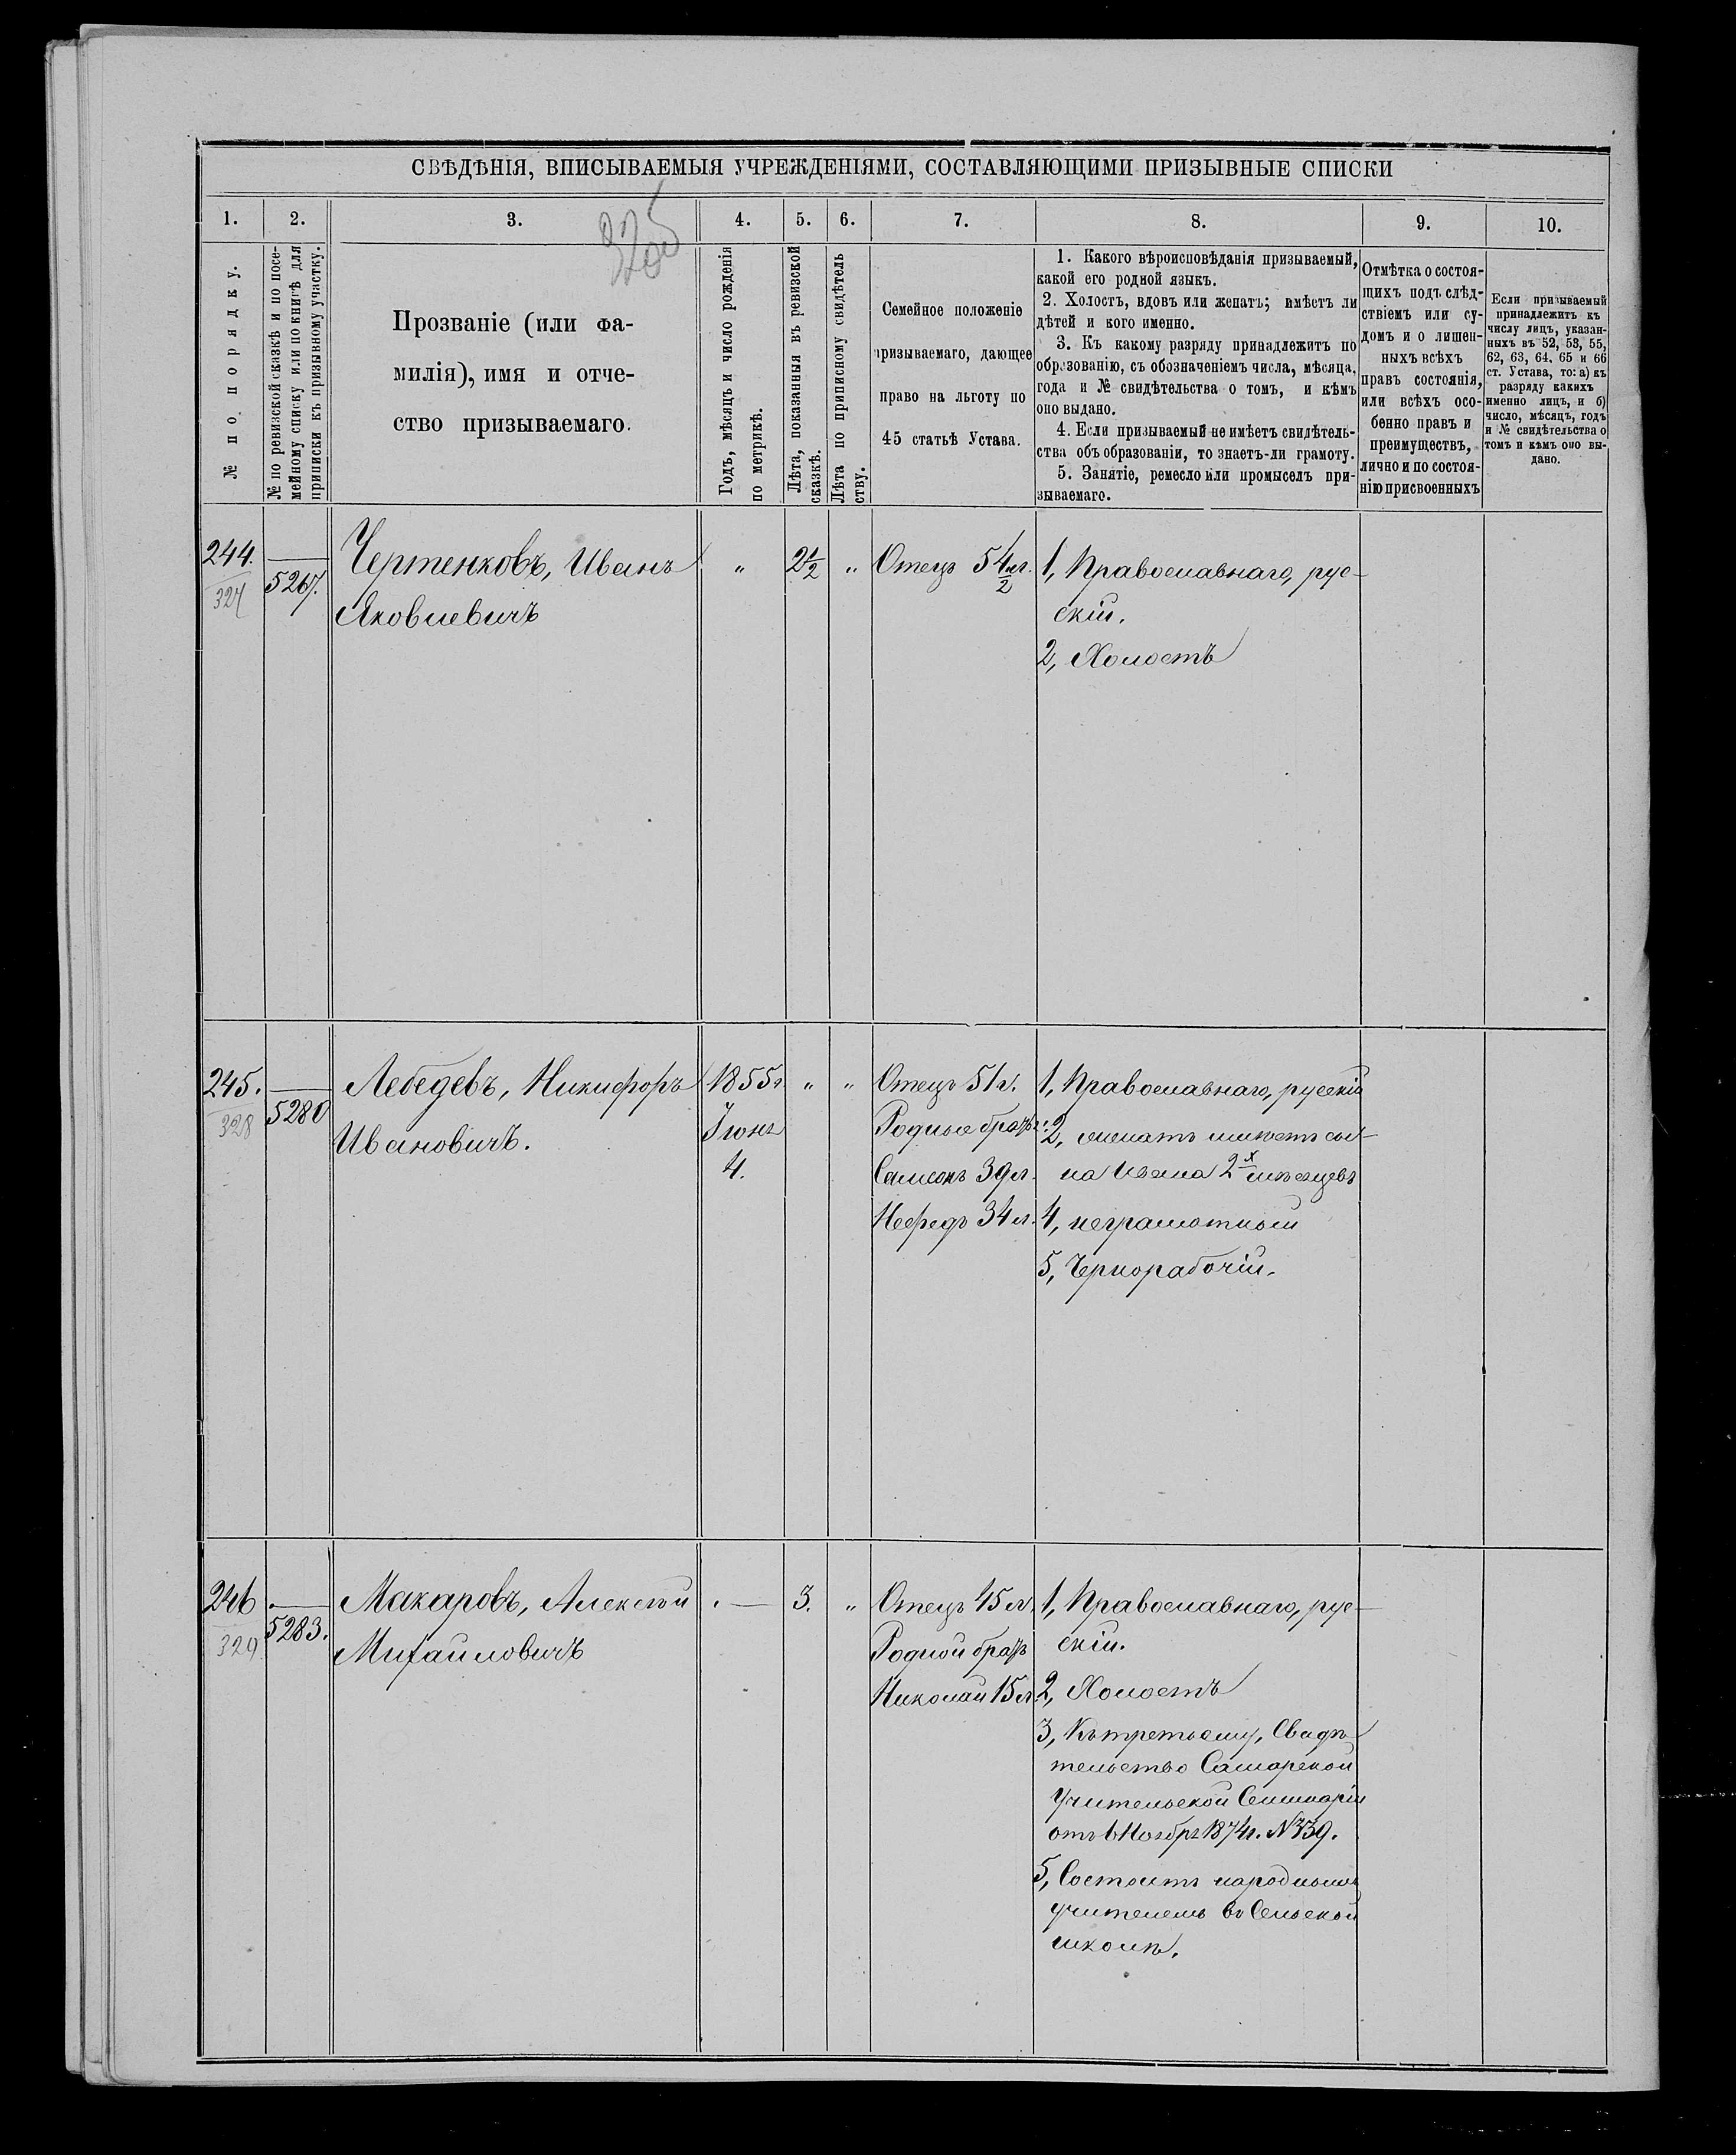 СВѢДѢНІЯ, ВПИСЫВАЕМЫЯ УЧРЕЖДЕНІЯМИ, СОСТАВЛЯЮЩИМИ ПРИЗЫВНЫЕ СПИСКИ
1.
2.
3.
4.
5.
6.
7.
8.
9.
10.
№ по порядку.
№ по ревизской сказкѣ и по посе-
мейному списку или по книгѣ для
приписки къ призывному участку.
Прозваніе (или фа-
милія), имя и отче-
ство призываемаго.
Годъ, мѣсяцъ и число рожденія
по метрикѣ.
Лѣта, показанныя въ ревизской
сказкѣ.
Лѣта по приписному свидѣтель
ству.
Семейное положеніе
призываемаго, дающее
право на льготу по
45 статьѣ Устава.
1. Какого вѣроисповѣданія призываемый,
какой его родной языкъ.
2. Холостъ, вдовъ или женатъ; имѣетъ ли
дѣтей и кого именно.
3. Къ какому разряду принадлежитъ по
образованію, съ обозначеніемъ числа, мѣсяца,
года и № свидѣтельства о томъ, и кѣмъ
оно выдано.
4. Если призываемый не имѣетъ свидѣтель-
ства объ образованіи, то знаетъ-ли грамоту.
5. Занятіе, ремесло или промыселъ при-
зываемаго.
Отмѣтка о состоя-
щихъ подъ слѣд-
ствіемъ или су-
домъ и о лишен-
ныхъ всѣхъ
правъ состоянія,
или всѣхъ осо-
бенно правъ и
преимуществъ,
лично и по состоя-
нію присвоенныхъ
Если призываемый
принадлежитъ къ
числу лицъ, указан-
ныхъ въ 52, 53, 55,
62, 63, 64, 65 и 66
ст. Устава, то: а) къ
разряду какихъ
именно лицъ, и б)
число, мѣсяцъ, годъ
и № свидѣтельства о
томъ и кѣмъ оно вы-
дано.
244.
327
5267.
Чертенковъ, Иванъ
Яковлевичъ
"
2½
"
Отецъ 54½л.
1, Православнаго, рус-
скій.
2, Холостъ
245.
328
5280
Лебедевъ, Никифоръ
Ивановичъ.
1855г.
Іюня
4.
"
"
Отецъ 51г.
Родные братья:
Самсонъ 39л.
Нефедъ 34л.
1, Православнаго, русскій
2, женатъ имѣетъ сы-
на Ивана 2х мѣсяцевъ
4, неграмотный
5, Чернорабочій.
246
329
5283.
Макаровъ, Алексѣй
Михайловичъ
. —
3.
"
Отецъ 45л.
Родной братъ
Николай 15л.
1, Православнаго, рус-
скій.
2, Холостъ
3, Къ третьему, Свидѣ-
тельство Самарской
Учительской Семинаріи
отъ 6 Ноября 1874г. №739.
5, Состоитъ народнымъ
учителемъ въ Сельской
школѣ.